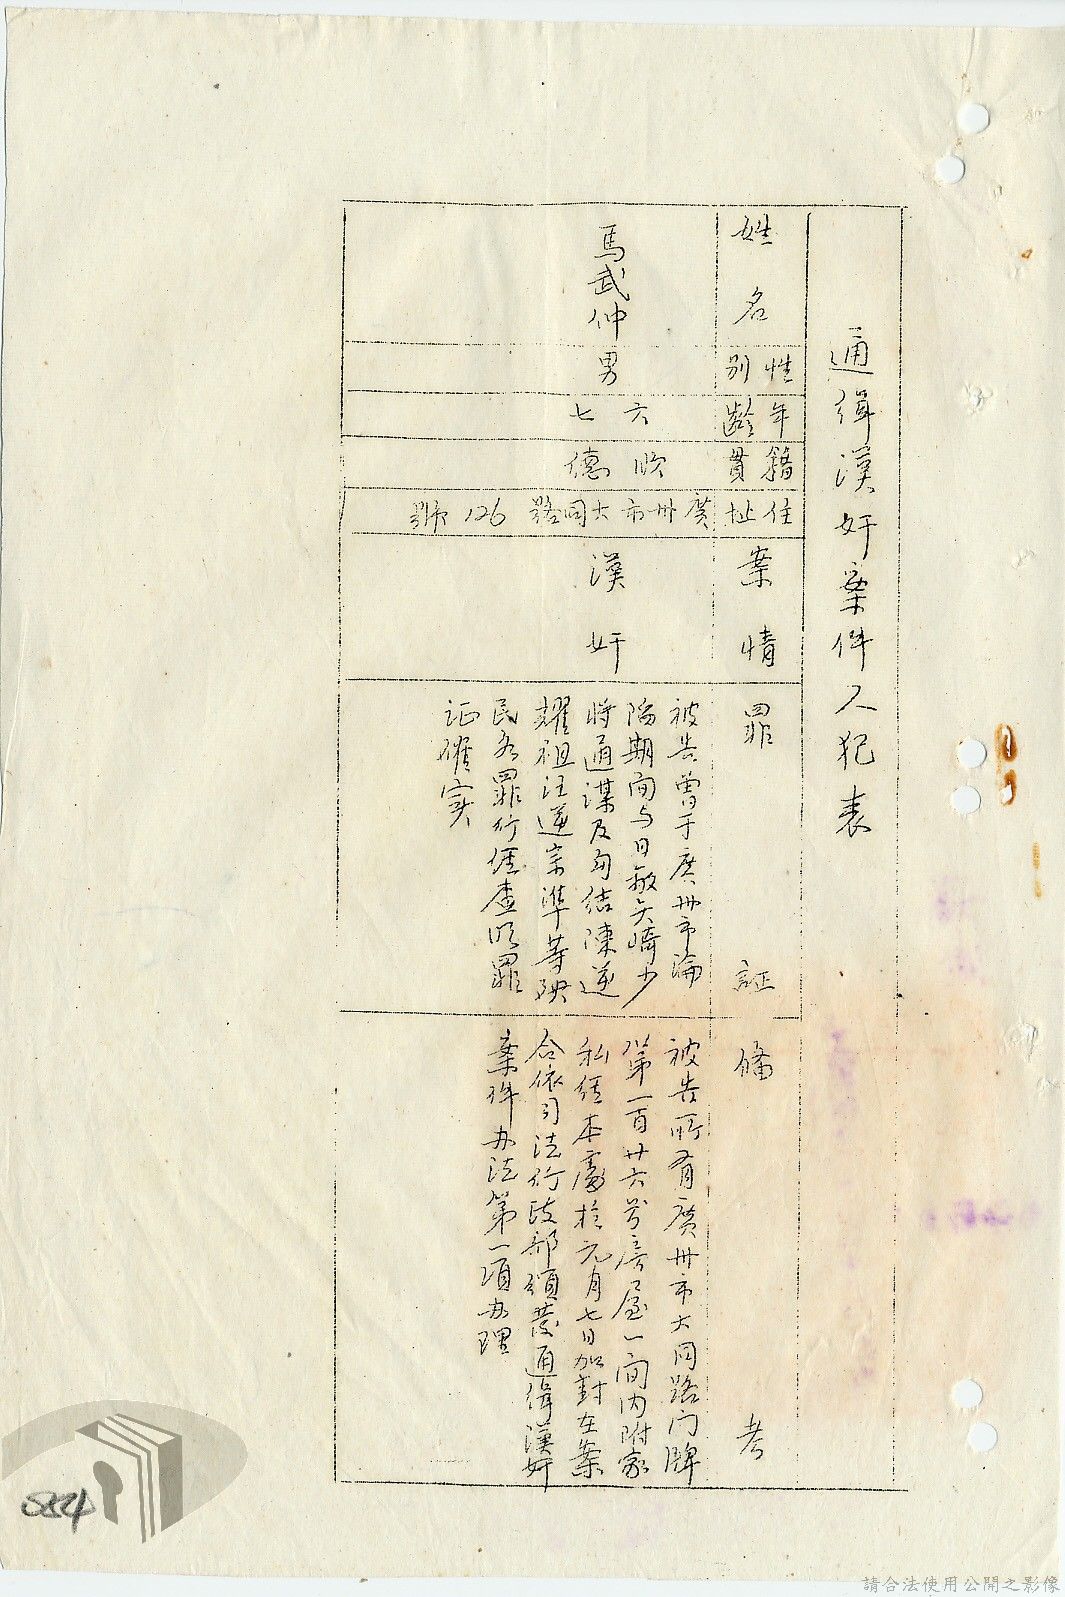 通緝漢奸案件人犯表
姓名
性別
年齡
籍貫
住址
案情
罪証
備考
馬武仲
男
六七
順德
廣州市大同路126號
漢奸
被告曽于广州市淪
陷期间与日敵矢崎少
将通謀及勾结陳逆
耀祖汪逆宗準等殃
民各罪行經查明罪
证確实
被告所有廣州市大同路门牌
第一百廿六号房屋一间内附家
私經本處於元月七日加封在案
合依司法行政部頒發通緝漢奸
案件办法第一項办理
5884
請合法使用公開之影像